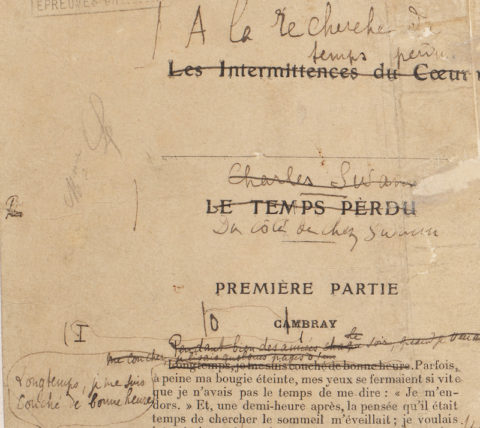 EPREUVES
A la recherche du
temps perdu
Les Intermittences du Cœur
Charles Swann
LE TEMPS PERDU
Du côté de chez Swann
PREMIÈRE PARTIE
O
I
CAMBRAY
Pendant bien des années, chaque soir, quand je venais
me coucher
Longtemps, je me suis couché de bonne heure. Parfois,
Longtemps, je me suis
Couché de bonne heure
à peine ma bougie éteinte, mes yeux se fermaient si vite
que je n'avais pas le temps de me dire : « Je m'en-
dors. » Et, une demi-heure après, la pensée qu'il était
temps de chercher le sommeil m'éveillait ; je voulais